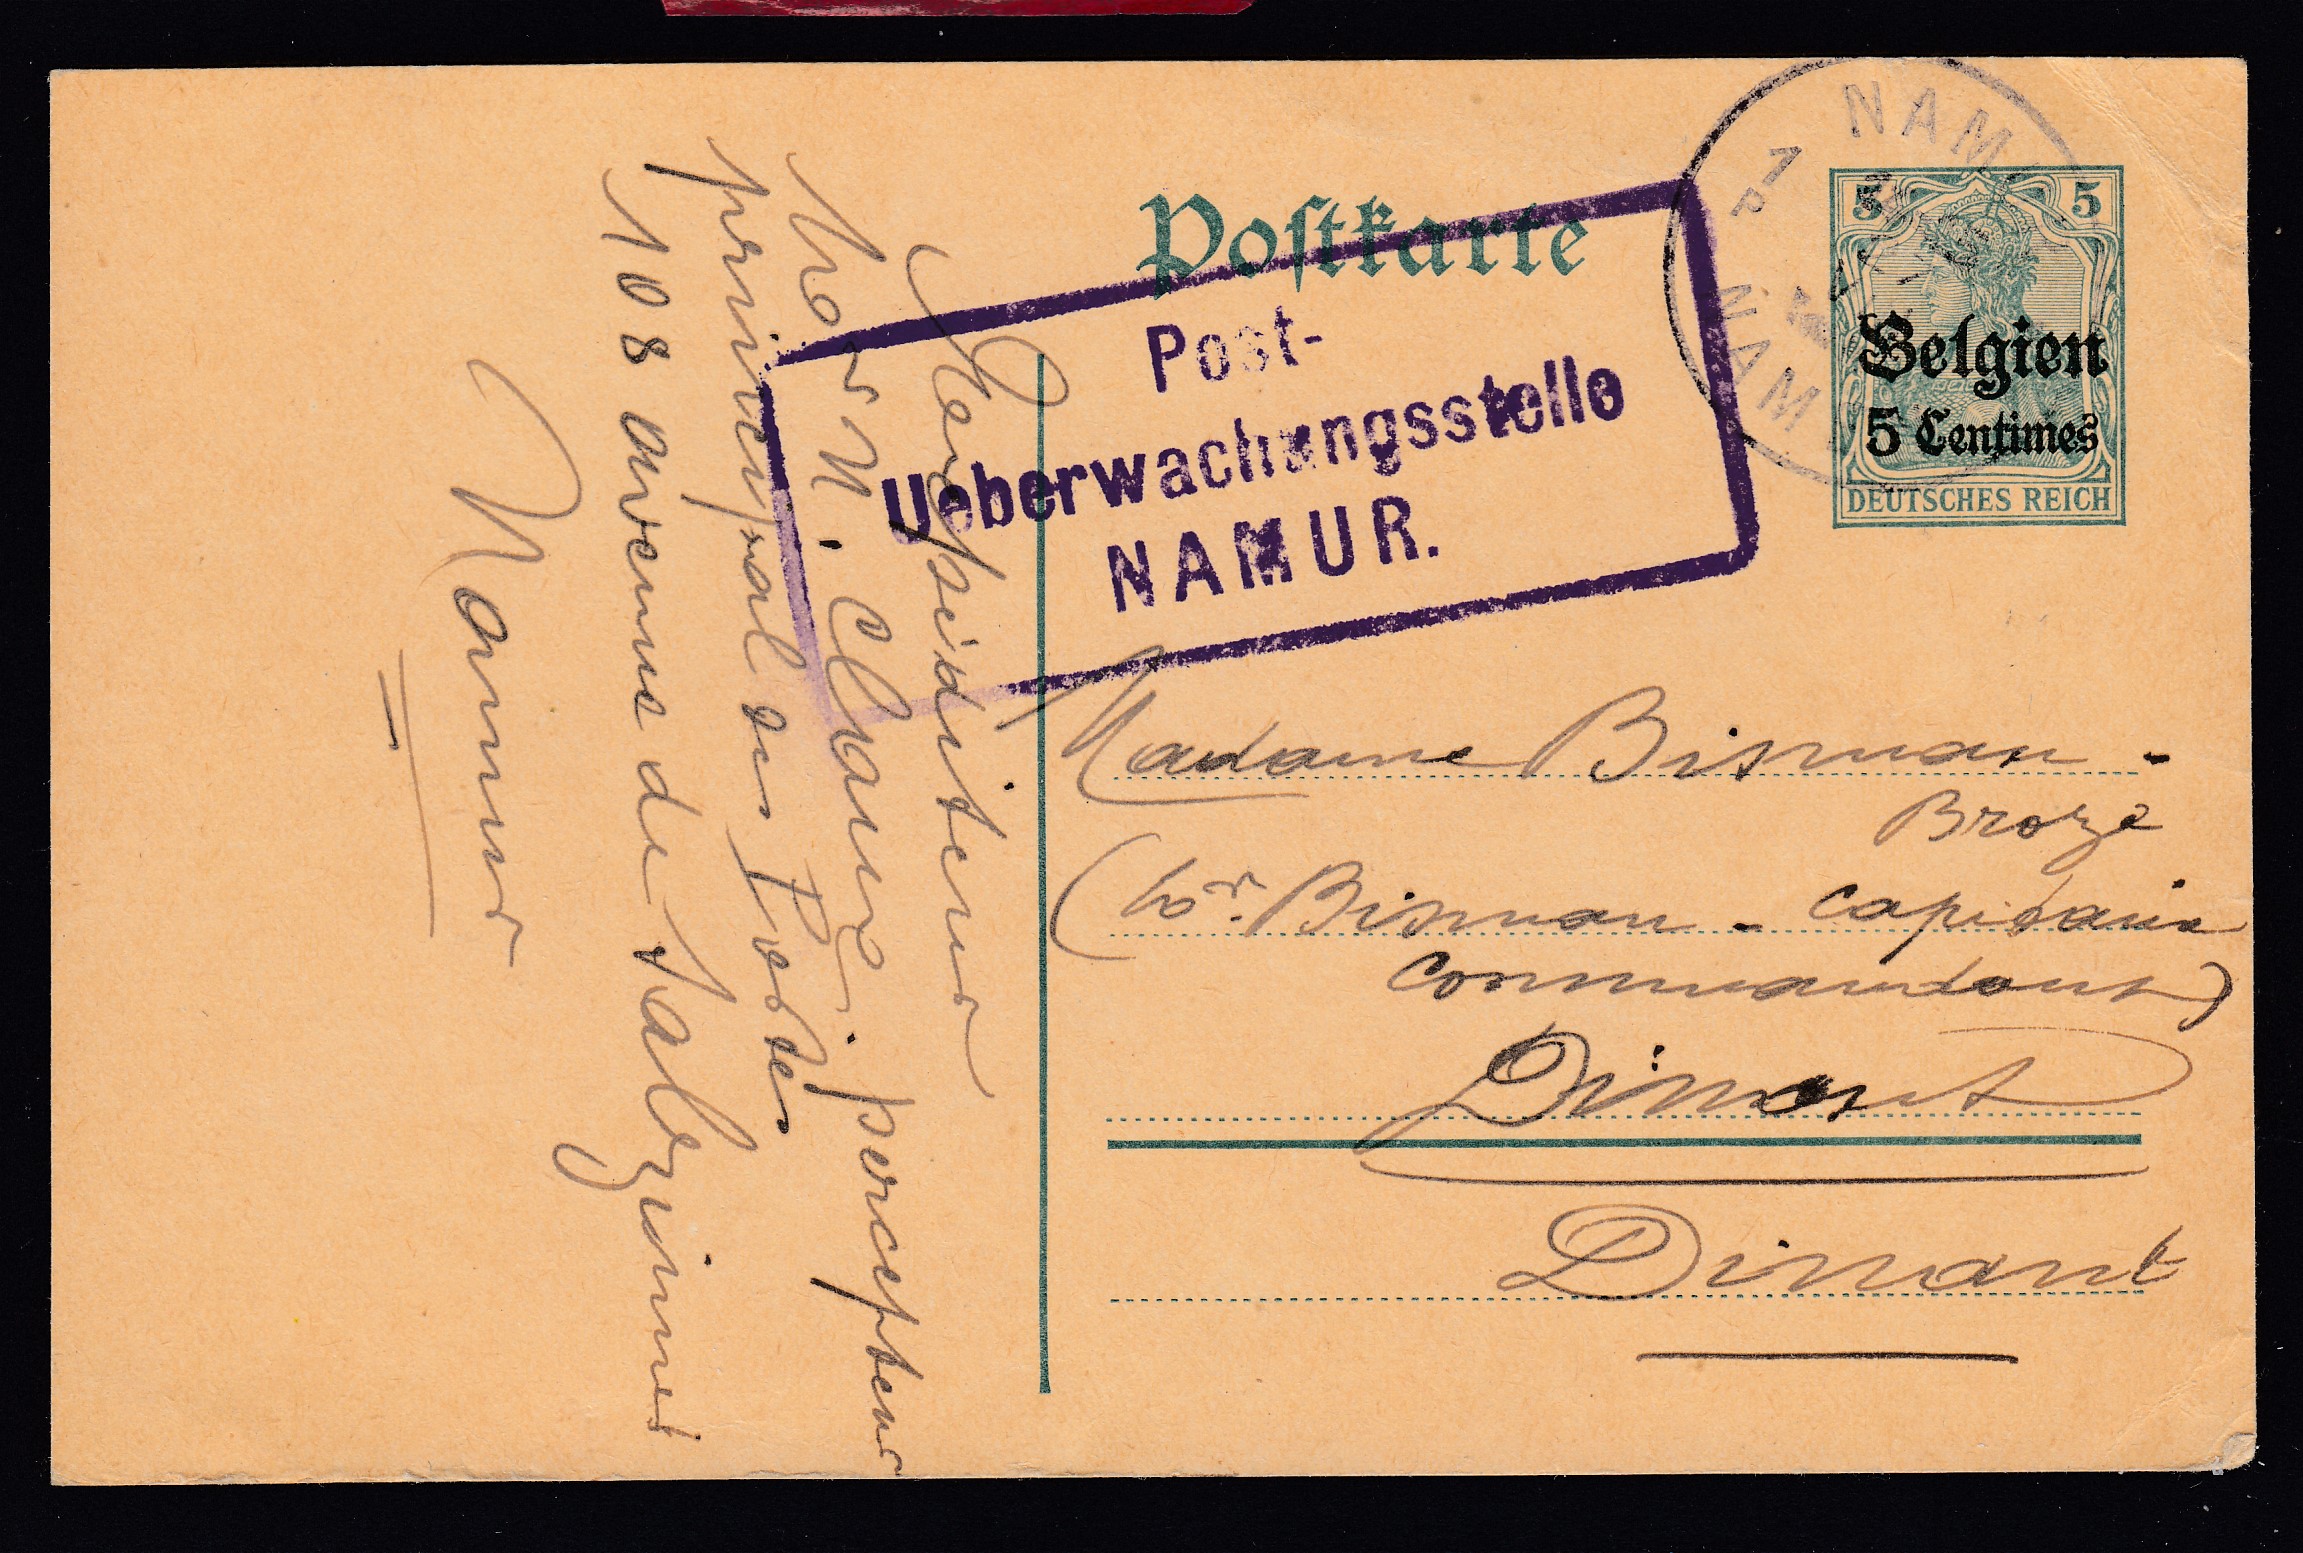 Postkarte
NAMUR
1
NAMUR
5 5
Belgien
5 Centimes
DEUTSCHES REICH
Post-
Ueberwachungsstelle
NAMUR.
Madame Bisman -
Broze
(Mor. Bisman - capitaine
commandant)
Dinant
Dinant
Expéditeur
percepteur
principal des Postes
108 avenue de Salzinnes
Namur